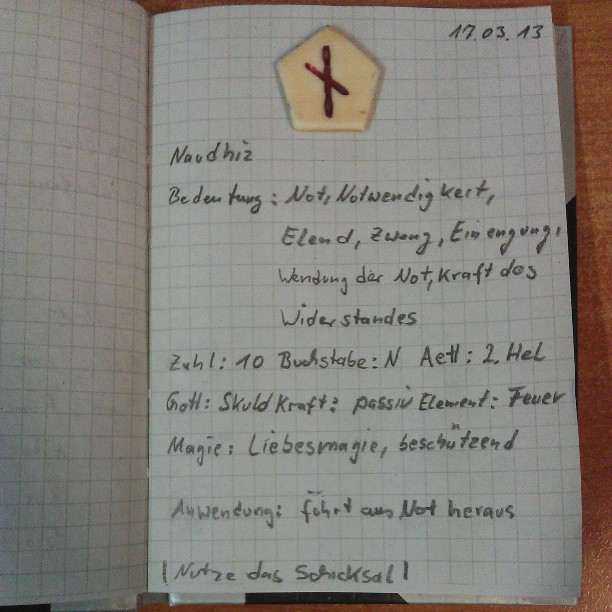 17.03.13
Naudhiz
Bedeutung: Not, Notwendigkeit,
Elend, Zwang, Einengung,
Wendung der Not, Kraft des
Widerstandes
Zahl: 10 Buchstabe: N Aett: 2. Hel
Gott: Skuld Kraft: passiv Element: Feuer
Magie: Liebesmagie, beschützend
Anwendung: führt aus Not heraus
|Nutze das Schicksal|